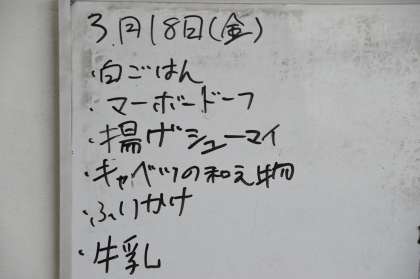 3月18日(金)
・白ごはん
・マーボードーフ
・揚げシューマイ
・キャベツの和え物
・ふりかけ
・牛乳